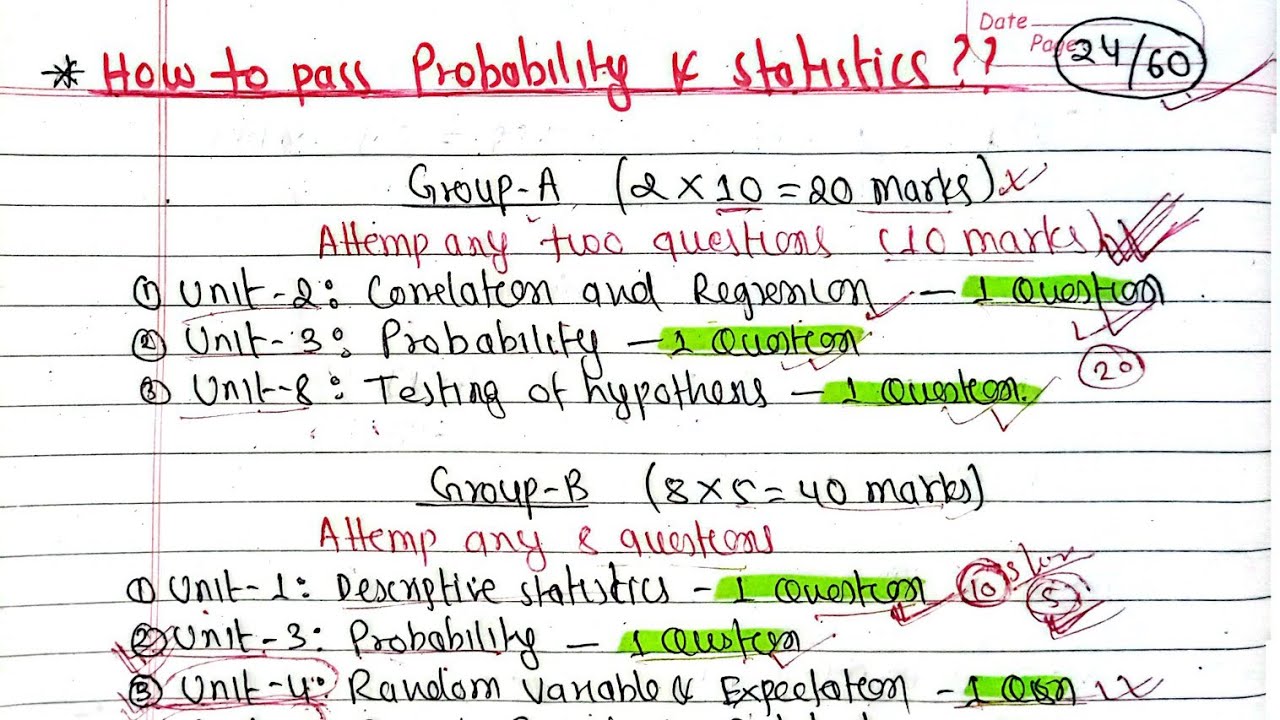 Date
Page
* How to pass Probability & statistics ?? 24/60
Group-A (2 × 10 = 20 marks)
Attemp any two questions (10 marks)
① Unit-2: Correlation and Regression - 1 Question
② Unit-3: Probability - 1 Question
20
③ Unit-8: Testing of hypothesis - 1 Question
Group-B (8 × 5 = 40 marks)
Attemp any 8 questions
① Unit-1: Descriptive statistics - 1 Question 10 5
② Unit-3: Probability - 1 Question
③ Unit-4: Random Variable & Expectation - 1 Qsn